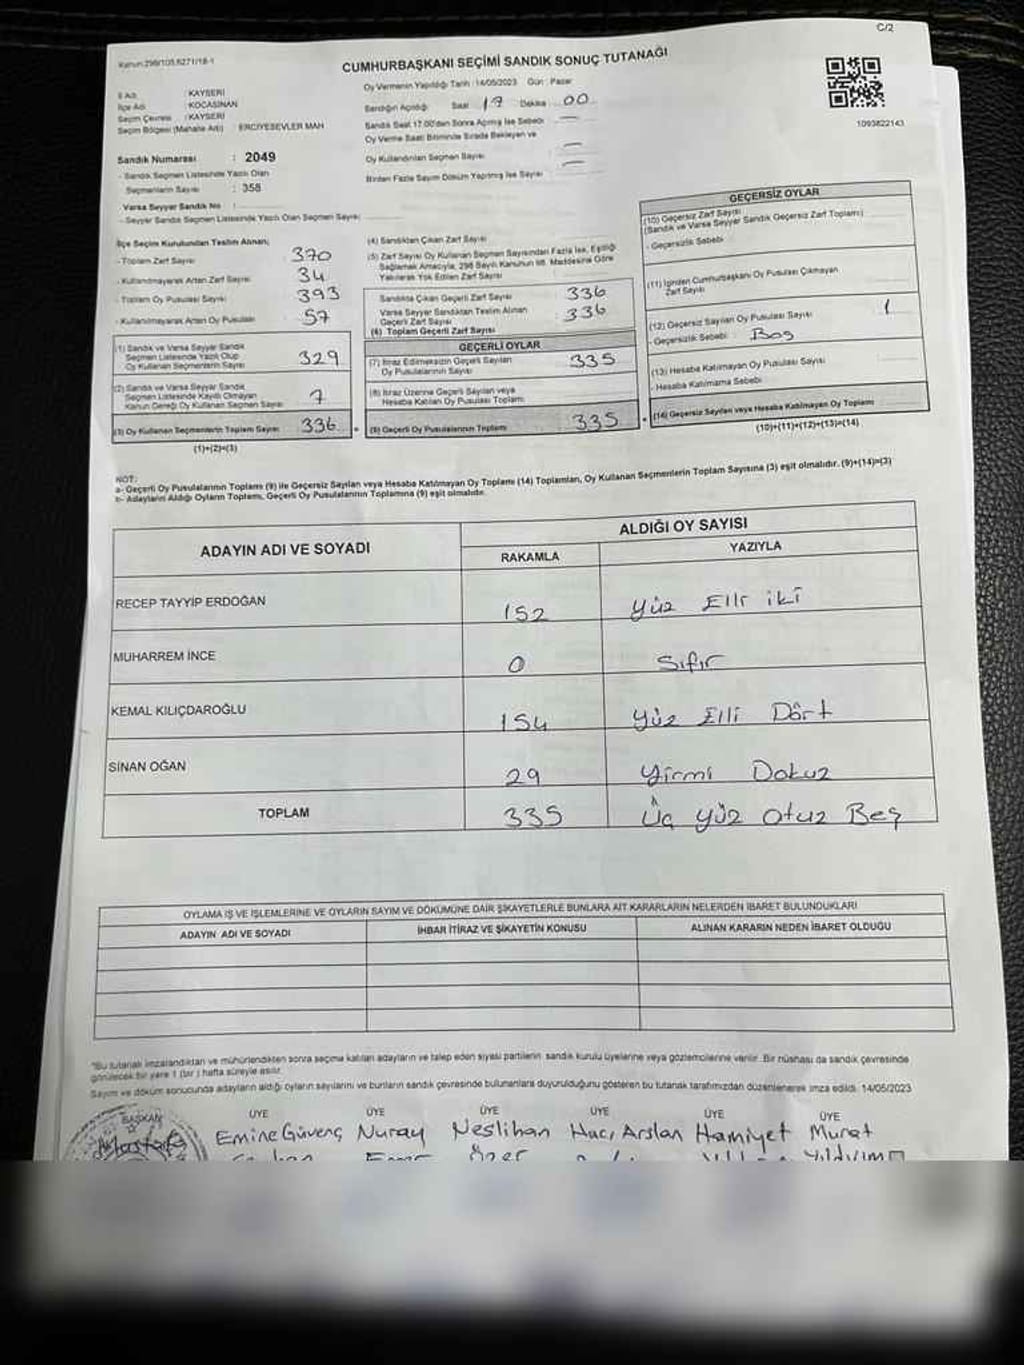 C/2
Kanun:298/105,6271/18-1
CUMHURBAŞKANI SEÇİMİ SANDIK SONUÇ TUTANAĞI
İl Adı : KAYSERİ
İlçe Adı : KOCASİNAN
Seçim Çevresi : KAYSERİ
Seçim Bölgesi (Mahalle Adı) : ERCİYESEVLER MAH
Sandık Numarası : 2049
- Sandık Seçmen Listesinde Yazılı Olan
Seçmenlerin Sayısı : 358
Varsa Seyyar Sandık No :
- Seyyar Sandık Seçmen Listesinde Yazılı Olan Seçmen Sayısı :
Oy Vermenin Yapıldığı Tarih : 14/05/2023 Gün : Pazar
Sandığın Açıldığı Saat 17 Dakika 00
Sandık Saat 17.00'den Sonra Açılmış İse Sebebi : —
Oy Verme Saati Bitiminde Sırada Bekleyen ve
Oy Kullandırılan Seçmen Sayısı —
Birden Fazla Sayım Döküm Yapılmış İse Sayısı —
1093822143
İlçe Seçim Kurulundan Teslim Alınan;
- Toplam Zarf Sayısı 370
- Kullanılmayarak Artan Zarf Sayısı 34
- Toplam Oy Pusulası Sayısı 393
- Kullanılmayarak Artan Oy Pusulası 57
(1) Sandık ve Varsa Seyyar Sandık
Seçmen Listesinde Yazılı Olup
Oy Kullanan Seçmenlerin Sayısı 329
(2) Sandık ve Varsa Seyyar Sandık
Seçmen Listesinde Kayıtlı Olmayan
Kanun Gereği Oy Kullanan Seçmen Sayısı 7
(3) Oy Kullanan Seçmenlerin Toplam Sayısı 336
(1)+(2)=(3)
(4) Sandıktan Çıkan Zarf Sayısı
(5) Zarf Sayısı Oy Kullanan Seçmen Sayısından Fazla İse, Eşitliği
Sağlamak Amacıyla, 298 Sayılı Kanunun 98. Maddesine Göre
Yakılarak Yok Edilen Zarf Sayısı
Sandıkta Çıkan Geçerli Zarf Sayısı 336
Varsa Seyyar Sandıktan Teslim Alınan
Geçerli Zarf Sayısı 336
(6) Toplam Geçerli Zarf Sayısı
GEÇERLİ OYLAR
(7) İtiraz Edilmeksizin Geçerli Sayılan
Oy Pusulalarının Sayısı 335
(8) İtiraz Üzerine Geçerli Sayılan veya
Hesaba Katılan Oy Pusulası Toplamı
(9) Geçerli Oy Pusulalarının Toplamı 335
GEÇERSİZ OYLAR
(10) Geçersiz Zarf Sayısı
(Sandık ve Varsa Seyyar Sandık Geçersiz Zarf Toplamı)
- Geçersizlik Sebebi
(11) İçinden Cumhurbaşkanı Oy Pusulası Çıkmayan
Zarf Sayısı
(12) Geçersiz Sayılan Oy Pusulası Sayısı 1
- Geçersizlik Sebebi Boş
(13) Hesaba Katılmayan Oy Pusulası Sayısı
- Hesaba Katılmama Sebebi
(14) Geçersiz Sayılan veya Hesaba Katılmayan Oy Toplamı
(10)+(11)+(12)+(13)=(14)
NOT:
a- Geçerli Oy Pusulalarının Toplamı (9) ile Geçersiz Sayılan veya Hesaba Katılmayan Oy Toplamı (14) Toplamları, Oy Kullanan Seçmenlerin Toplam Sayısına (3) eşit olmalıdır. (9)+(14)=(3)
b- Adayların Aldığı Oyların Toplamı, Geçerli Oy Pusulalarının Toplamına (9) eşit olmalıdır.
ADAYIN ADI VE SOYADI ALDIĞI OY SAYISI
RAKAMLA YAZIYLA
RECEP TAYYİP ERDOĞAN 152 Yüz Elli iki
MUHARREM İNCE 0 Sıfır
KEMAL KILIÇDAROĞLU 154 Yüz Elli Dört
SİNAN OĞAN 29 Yirmi Dokuz
TOPLAM 335 Üç Yüz Otuz Beş
OYLAMA İŞ VE İŞLEMLERİNE VE OYLARIN SAYIM VE DÖKÜMÜNE DAİR ŞİKAYETLERLE BUNLARA AİT KARARLARIN NELERDEN İBARET BULUNDUKLARI
ADAYIN ADI VE SOYADI İHBAR İTİRAZ VE ŞİKAYETİN KONUSU ALINAN KARARIN NEDEN İBARET OLDUĞU
"Bu tutanak imzalandıktan ve mühürlendikten sonra seçime katılan adayların ve talep eden siyasi partilerin sandık kurulu üyelerine veya gözlemcilerine verilir. Bir nüshası da sandık çevresinde
görülecek bir yere 1 (bir ) hafta süreyle asılır.
Sayım ve döküm sonucunda adayların aldığı oyların sayılarını ve bunların sandık çevresinde bulunanlara duyurulduğunu gösteren bu tutanak tarafımızdan düzenlenerek imza edildi. 14/05/2023
BAŞKAN ÜYE ÜYE ÜYE ÜYE ÜYE ÜYE
Mustafa Emine Güvenç Nuray Neslihan Hacı Arslan Hamiyet Murat
Özer Yıldırım